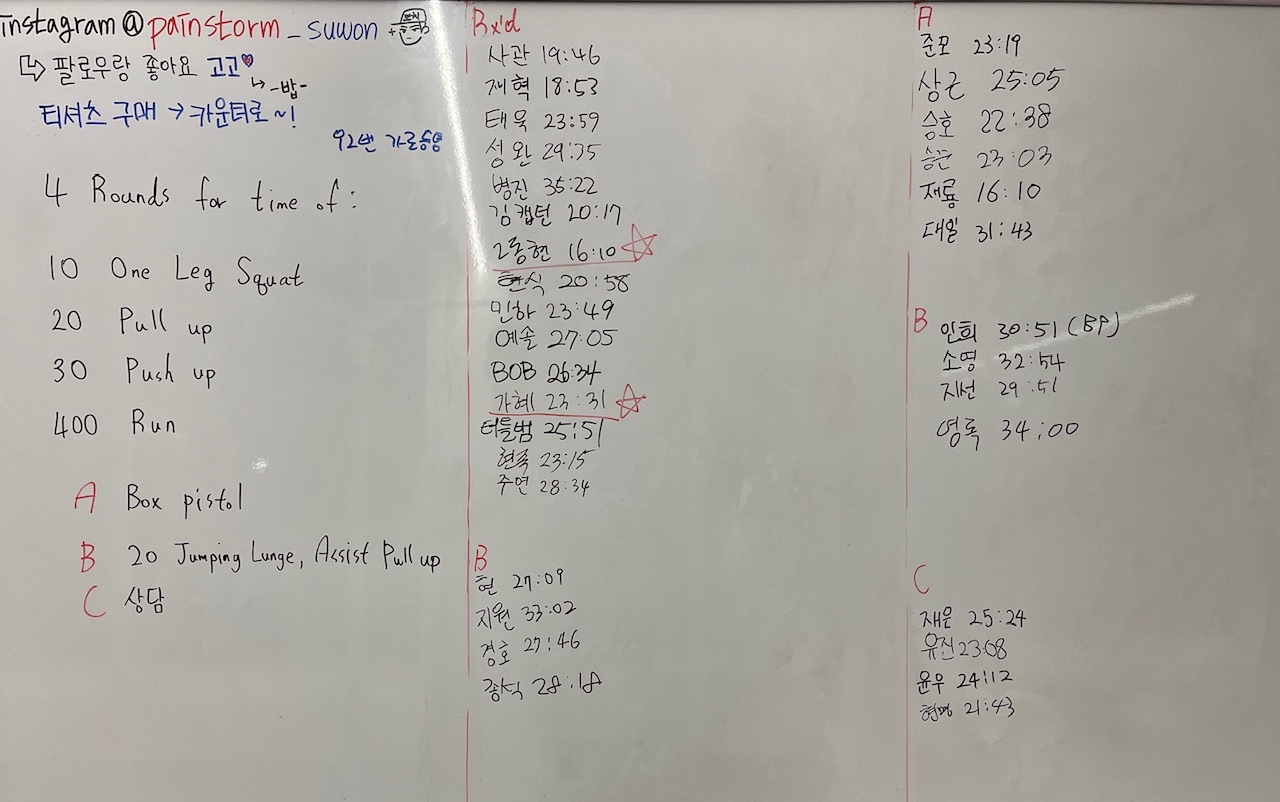 instagram@painstorm_suwon +
↳ 팔로우랑 좋아요 고고♥
↳ -밥-
티셔츠 구매 → 카운터로~!
92번
4 Rounds for time of:
10 One Leg Squat
20 Pull up
30 Push up
400 Run
A Box pistol
B 20 Jumping Lunge, Assist Pull up
C 상담
Rx'd
사관 19:46
재혁 18:53
태욱 23:59
성완 29:35
병진 35:22
김캡틴 20:17
2동현 16:10 ☆
현식 20:58
민하 23:49
예솔 27:05
BOB 26:34
가혜 23:31 ☆
터틀범 25:51
23:15
주연 28:34
B
현 27:09
지원 33:02
경호 27:46
종식 28:18
A
준모 23:19
상근 25:05
승호 22:38
23:03
재룡 16:10
대일 31:43
B
인희 30:51 (BP)
소영 32:54
지선 29:51
영록 34:00
C
재은 25:24
유진 23:08
윤우 24:12
21:43